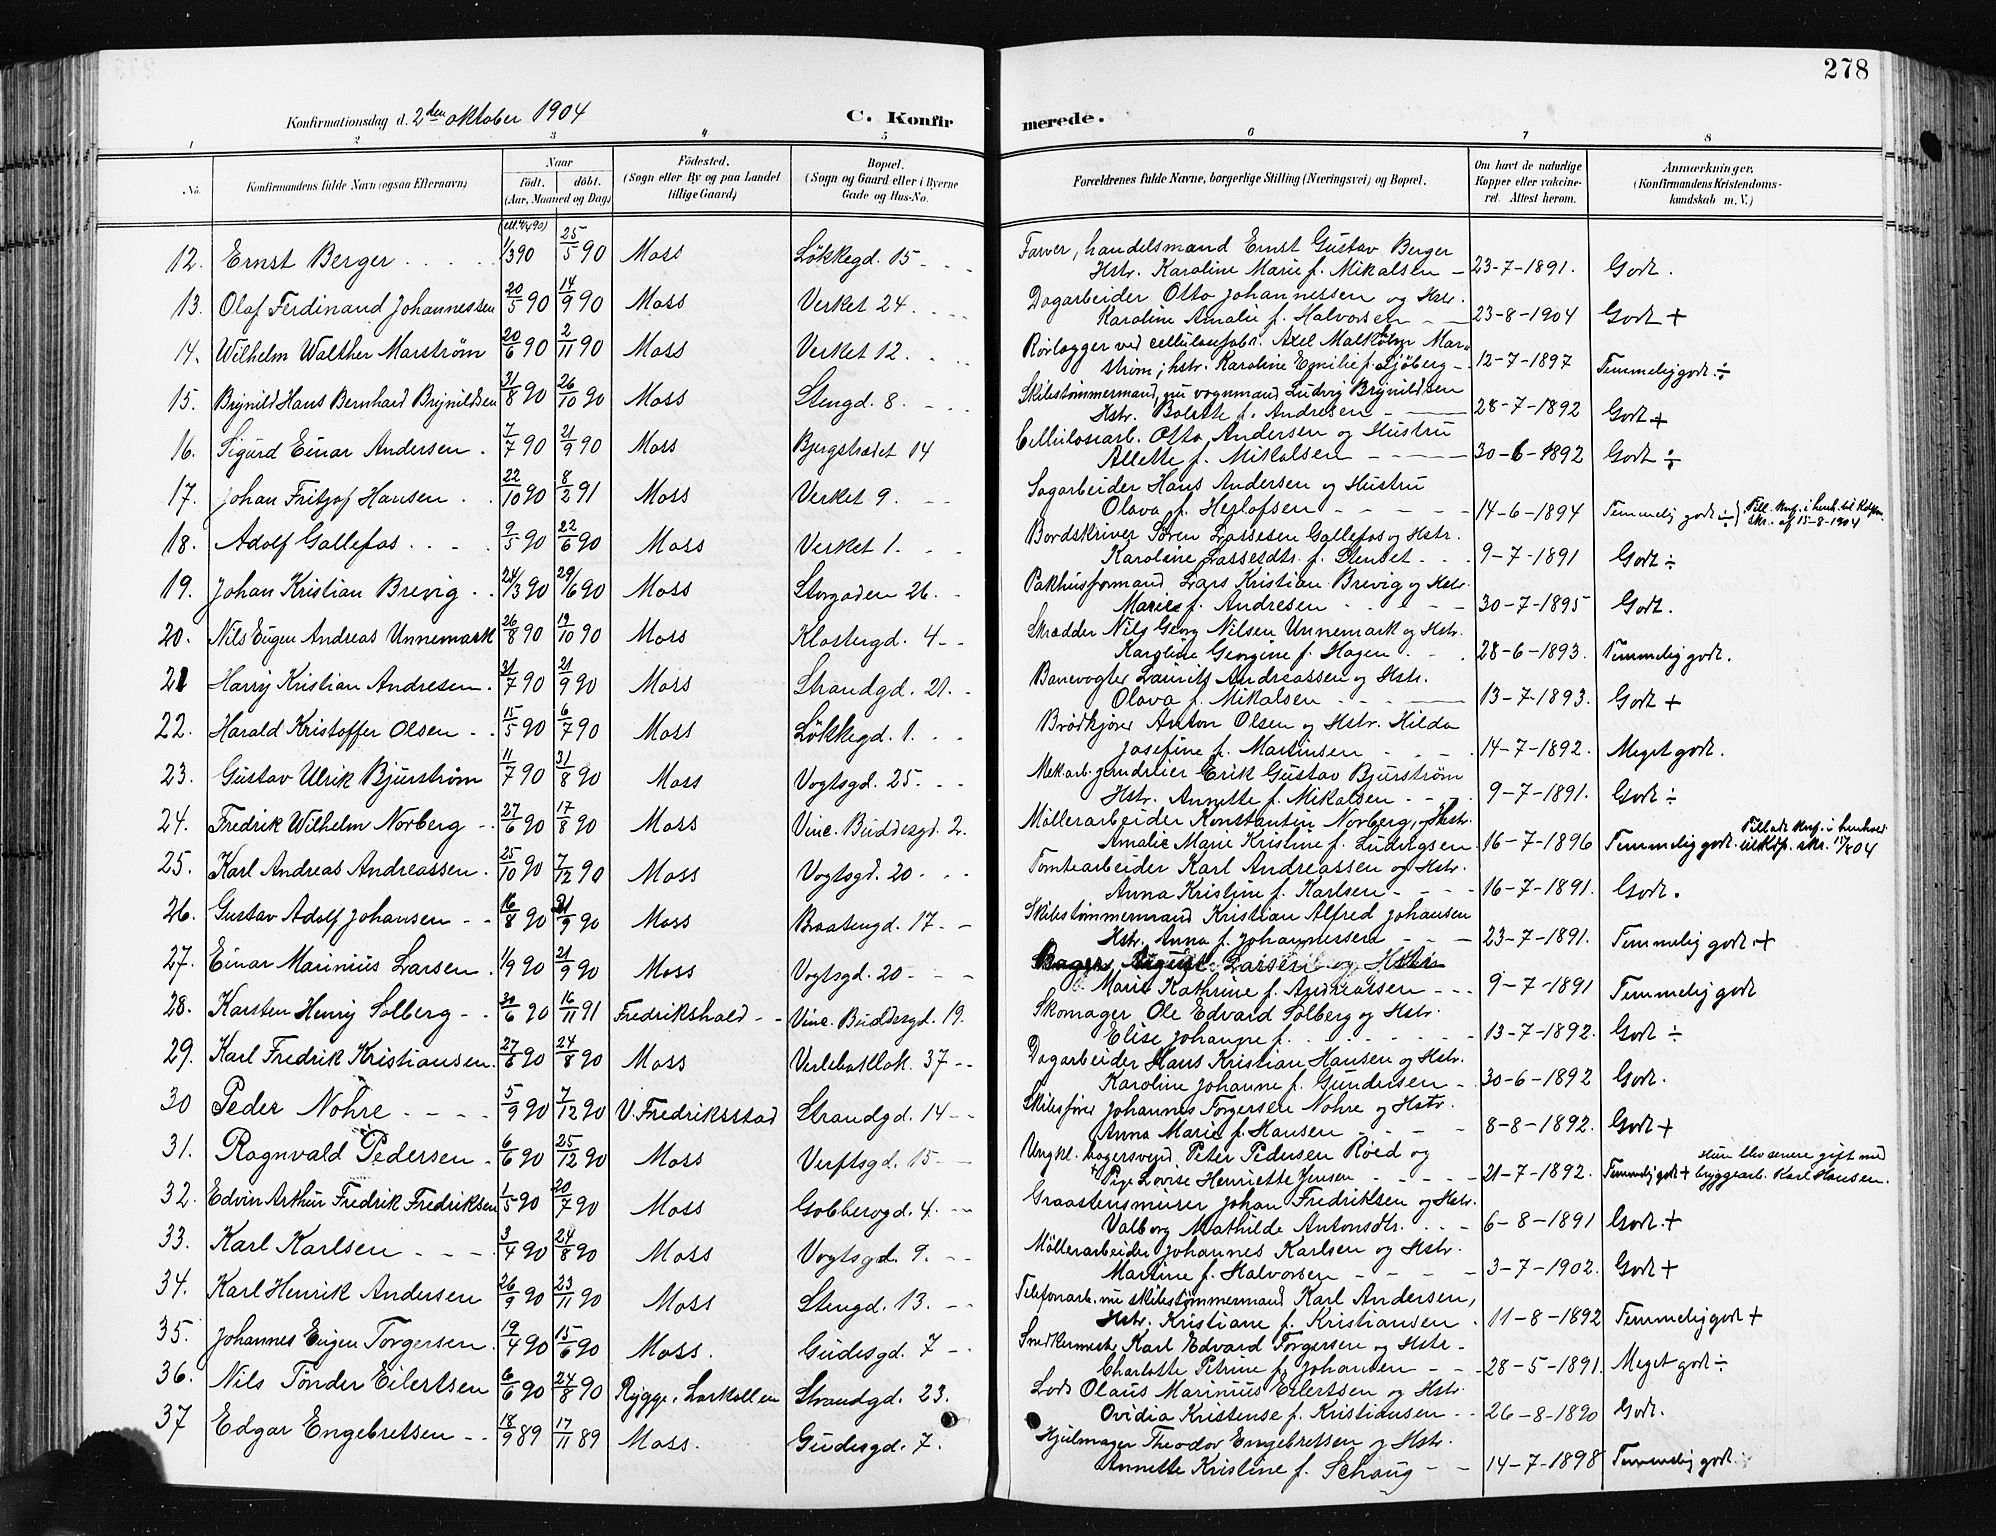 278
Konfirmationsdag d. 2den oktober 1904
C. Konfirmerede.
1 2 3 4 5 6 7 8
No. Konfirmandens fulde Navn (ogsaa Efternavn)
Naar født. døbt. (Aar, Maaned og Dag)
Fødested. (Sogn eller By og paa Landet tillige Gaard)
Bopæl. (Sogn og Gaard eller i Byerne Gade og Hus-No.
Forældrenes fulde Navne, borgerlige Stilling (Næringsvei) og Bopæl.
Om havt de naturlige Kopper eller vakcineret. Attest herom.
Anmærkninger. (Konfirmandens Kristendomskundskab m. V.)
12. Ernst Berger 1/3 90 25/5 90 Moss Løkkegd. 15 Farver, handelsmand Ernst Gustav Berger
Hstr. Karoline Marie f. Mikalsen 23-7-1891. Godt.
13. Olaf Ferdinand Johannessen 20/5 90 14/9 90 Moss Verket 24 Dagarbeider Otto Johannessen og Hstr.
Karoline Amalie f. Halvorsen 23-8-1904 Godt +
14. Wilhelm Walther Marstrøm 20/6 90 2/11 90 Moss Verket 12. Rørlægger ved cellulosefabr. Axel Malkolm Mar-
strøm; hstr. Karoline Emilie f. Sjöberg 12-7-1897 Temmelig godt ÷
15. Brynild Hans Bernhard Brynildsen 31/8 90 26/10 90 Moss Stengd. 8. Skibstømmermand, nu vognmand Ludvig Brynildsen
Hstr. Bolette f. Andresen 28-7-1892 Godt +
16. Sigurd Einar Andersen 7/7 90 21/9 90 Moss Bjergstrædet 14 Cellulosearb. Otto Andersen og Hustru
Allette f. Mikalsen 30-6-1892 Godt ÷
17. Johan Fritjof Hansen 22/10 90 8/2 91 Moss Verket 9. Sagarbeider Hans Andersen og Hustru
Olava f. Hejlofsen 14-6-1894 Temmelig godt ÷
skr. af 15-8-1904
18. Adolf Gallefos 9/5 90 22/6 90 Moss Verket 1. Bordskriver Søren Lassesen Gallefos og Hstr.
Karoline Lassesdtr. f. Stenset 9-7-1891 Godt ÷
19. Johan Kristian Brevig 24/3 90 29/6 90 Moss Storgaden 26. Pakhusformand Lars Kristian Brevig og Hstr.
Marie f. Andresen 30-7-1895 Godt.
20. Nils Eugen Andreas Unnemark 26/8 90 19/10 90 Moss Klostergd. 4 Skrædder Nils Georg Nilsen Unnemark og Hstr.
Karoline Georgine f. Hagen 28-6-1893. Temmelig godt.
21 Harry Kristian Andresen 31/7 90 21/9 90 Moss Strandgd. 21. Banevogter Laurits Andreassen og Hstr.
Olava f. Mikalsen 13-7-1893. Godt +
22. Harald Kristoffer Olsen 15/5 90 6/7 90 Moss Løkkegd. 1. Brødkjører Anton Olsen og Hstr. Hilda
Josefine f. Martinsen 14-7-1892. Meget godt.
23. Gustav Ulrik Bjurstrøm 11/7 90 31/8 90 Moss Vogtsgd. 25. Mek.arb. Erik Gustav Bjurstrøm
Hstr. Annette f. Mikalsen 9-7-1891. Godt ÷
24. Fredrik Wilhelm Norberg 27/6 90 17/8 90 Moss Vinc. Buddesgd. 2. Møllerarbeider Konstantin Norberg, og Hstr.
Amalie Marie Kristine f. Ludvigsen 16-7-1896 Temmelig godt.
25. Karl Andreas Andreassen 25/10 90 7/12 90 Moss Vogtsgd. 20 Tomtearbeider Karl Andreassen og Hstr.
Anna Kristine f. Karlsen 16-7-1891. Godt.
26. Gustav Adolf Johansen 16/8 90 21/9 90 Moss Braatengd. 17. Skibstømmermand Kristian Alfred Johansen
Hstr. Anna f. Johannessen 23-7-1891. Temmelig godt. +
27. Einar Marinius Larsen 1/9 90 21/9 90 Moss Vogtsgd. 20 Bager August Larsen og Hstr.
Marie Kathrine f. Andreassen 9-7-1891 Temmelig godt
28. Karsten Henry Solberg 30/6 90 16/11 91 Fredrikshald Vinc. Buddesgd. 19. Skomager Ole Edvard Solberg og Hstr.
Elise Johanne f. 13-7-1892. Godt ÷
29. Karl Fredrik Kristiansen 27/6 90 24/8 90 Moss Verlebakklok. 37 Dagarbeider Hans Kristian Hansen og Hstr.
Karoline Johanne f. Gundersen 30-6-1892 Godt.
30 Peder Nohre 5/9 90 7/12 90 V. Fredriksstad Strandgd. 14 Skibsfører Johannes Torgersen Nohre og Hstr.
Anna Marie f. Hansen 8-8-1892. Godt +
31. Ragnvald Pedersen 6/6 90 25/12 90 Moss Verftsgd. 15 Ungkl. bagersvend Peter Pedersen Røed og
Pige Lovise Henriette Jensen 21-7-1892. Temmelig godt + Hun blev senere gift med
bryggearb. Karl Hansen.
32. Edvin Arthur Fredrik Fredriksen 1/5 90 20/7 90 Moss Gobbersgd. 4. Graastensmurer Johan Fredriksen og Hstr.
Valborg Mathilde Antonsdtr. 6-8-1891 Godt. +
33. Karl Karlsen 3/4 90 24/8 90 Moss Vogtsgd. 9. Møllerarbeider Johannes Karlsen og Hstr.
Martine f. Halvorsen 3-7-1902. Godt +
34. Karl Henrik Andersen 26/9 90 23/11 90 Moss Stengd. 13. Telefonarb. nu skibstømmermand Karl Andersen,
Hstr. Kristiane f. Kristiansen 11-8-1892 Temmelig godt +
35. Johannes Eugen Torgersen 19/4 90 15/6 90 Moss. Gudesgd. 7 Snedkermester Karl Edvard Torgersen og Hstr.
Charlotte Petrine f. Johansen 28-5-1891. Meget godt ÷
36. Nils Tønder Eilertsen 6/6 90 24/8 90 Rygge, Larkollen Strandgd. 23. Lods Olaus Marinius Eilertsen og Hstr.
Ovidia Kristense f. Kristiansen 26-8-1890 Godt.
37 Edgar Engebretsen 18/9 89 17/11 89 Moss. Gudesgd. 7. Hjulmager Theodor Engebretsen og Hstr.
Annette Kristine f. Schaug 14-7-1898 Temmelig godt.